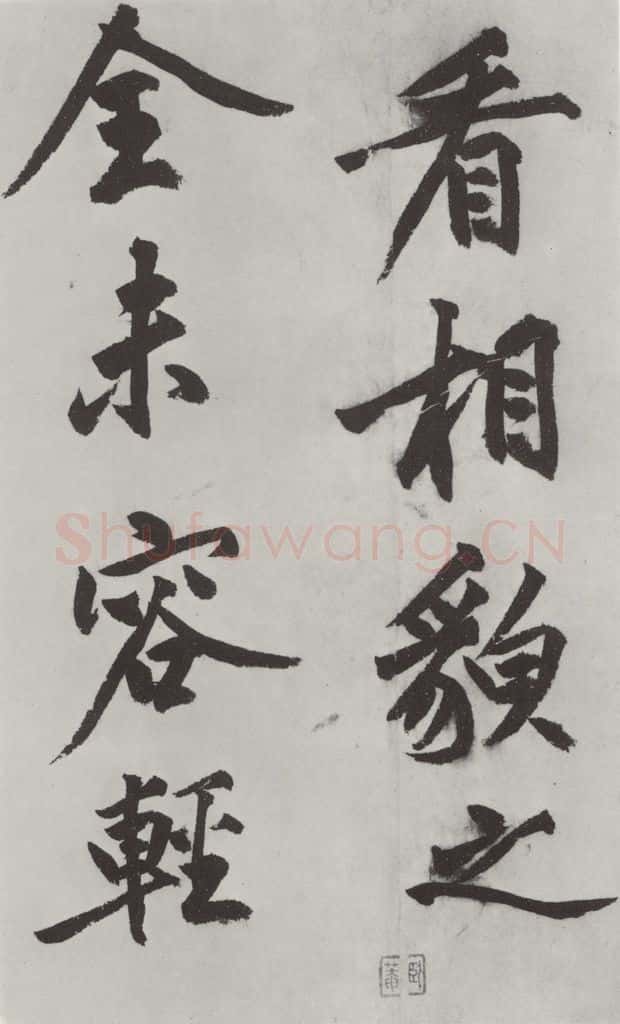 看相貌之
全未容輕
Shufawang.CN